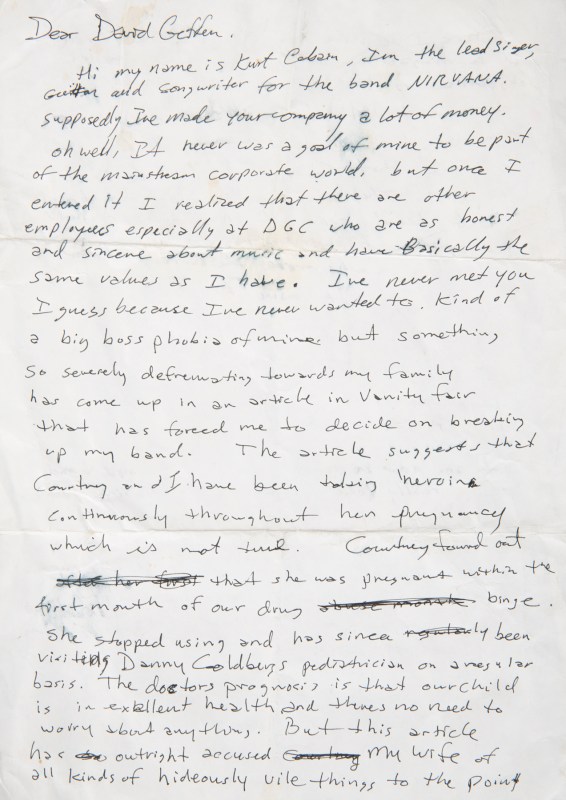 Dear David Geffen.
Hi my name is Kurt Cobain, Im the lead singer,
guitar and songwriter for the band NIRVANA.
supposedly Ive made your company a lot of money.
oh well, It never was a goal of mine to be part
of the mainstream corporate world. but once I
entered it I realized that there are other
employees especially at DGC who are as honest
and sincere about music and have Basically the
same values as I have. Ive never met you
I guess because Ive never wanted to. Kind of
a big boss phobia of mine. but something
so severely defremating towards my family
has come up in an article in Vanity fair
that has forced me to decide on breaking
up my band. The article suggests that
Courtney and I have been taking heroine
continuously throughout her pregnancy
which is not true. Courtney found out
after her first that she was pregnant within the
first month of our drug binge.
She stopped using and has since regularly been
visiting Danny Goldbergs pediatrician on a regular
basis. The doctors prognosis is that our child
is in excellent health and theres no need to
worry about anything. But this article
has outright accused Courtney My wife of
all kinds of hideously vile things to the point